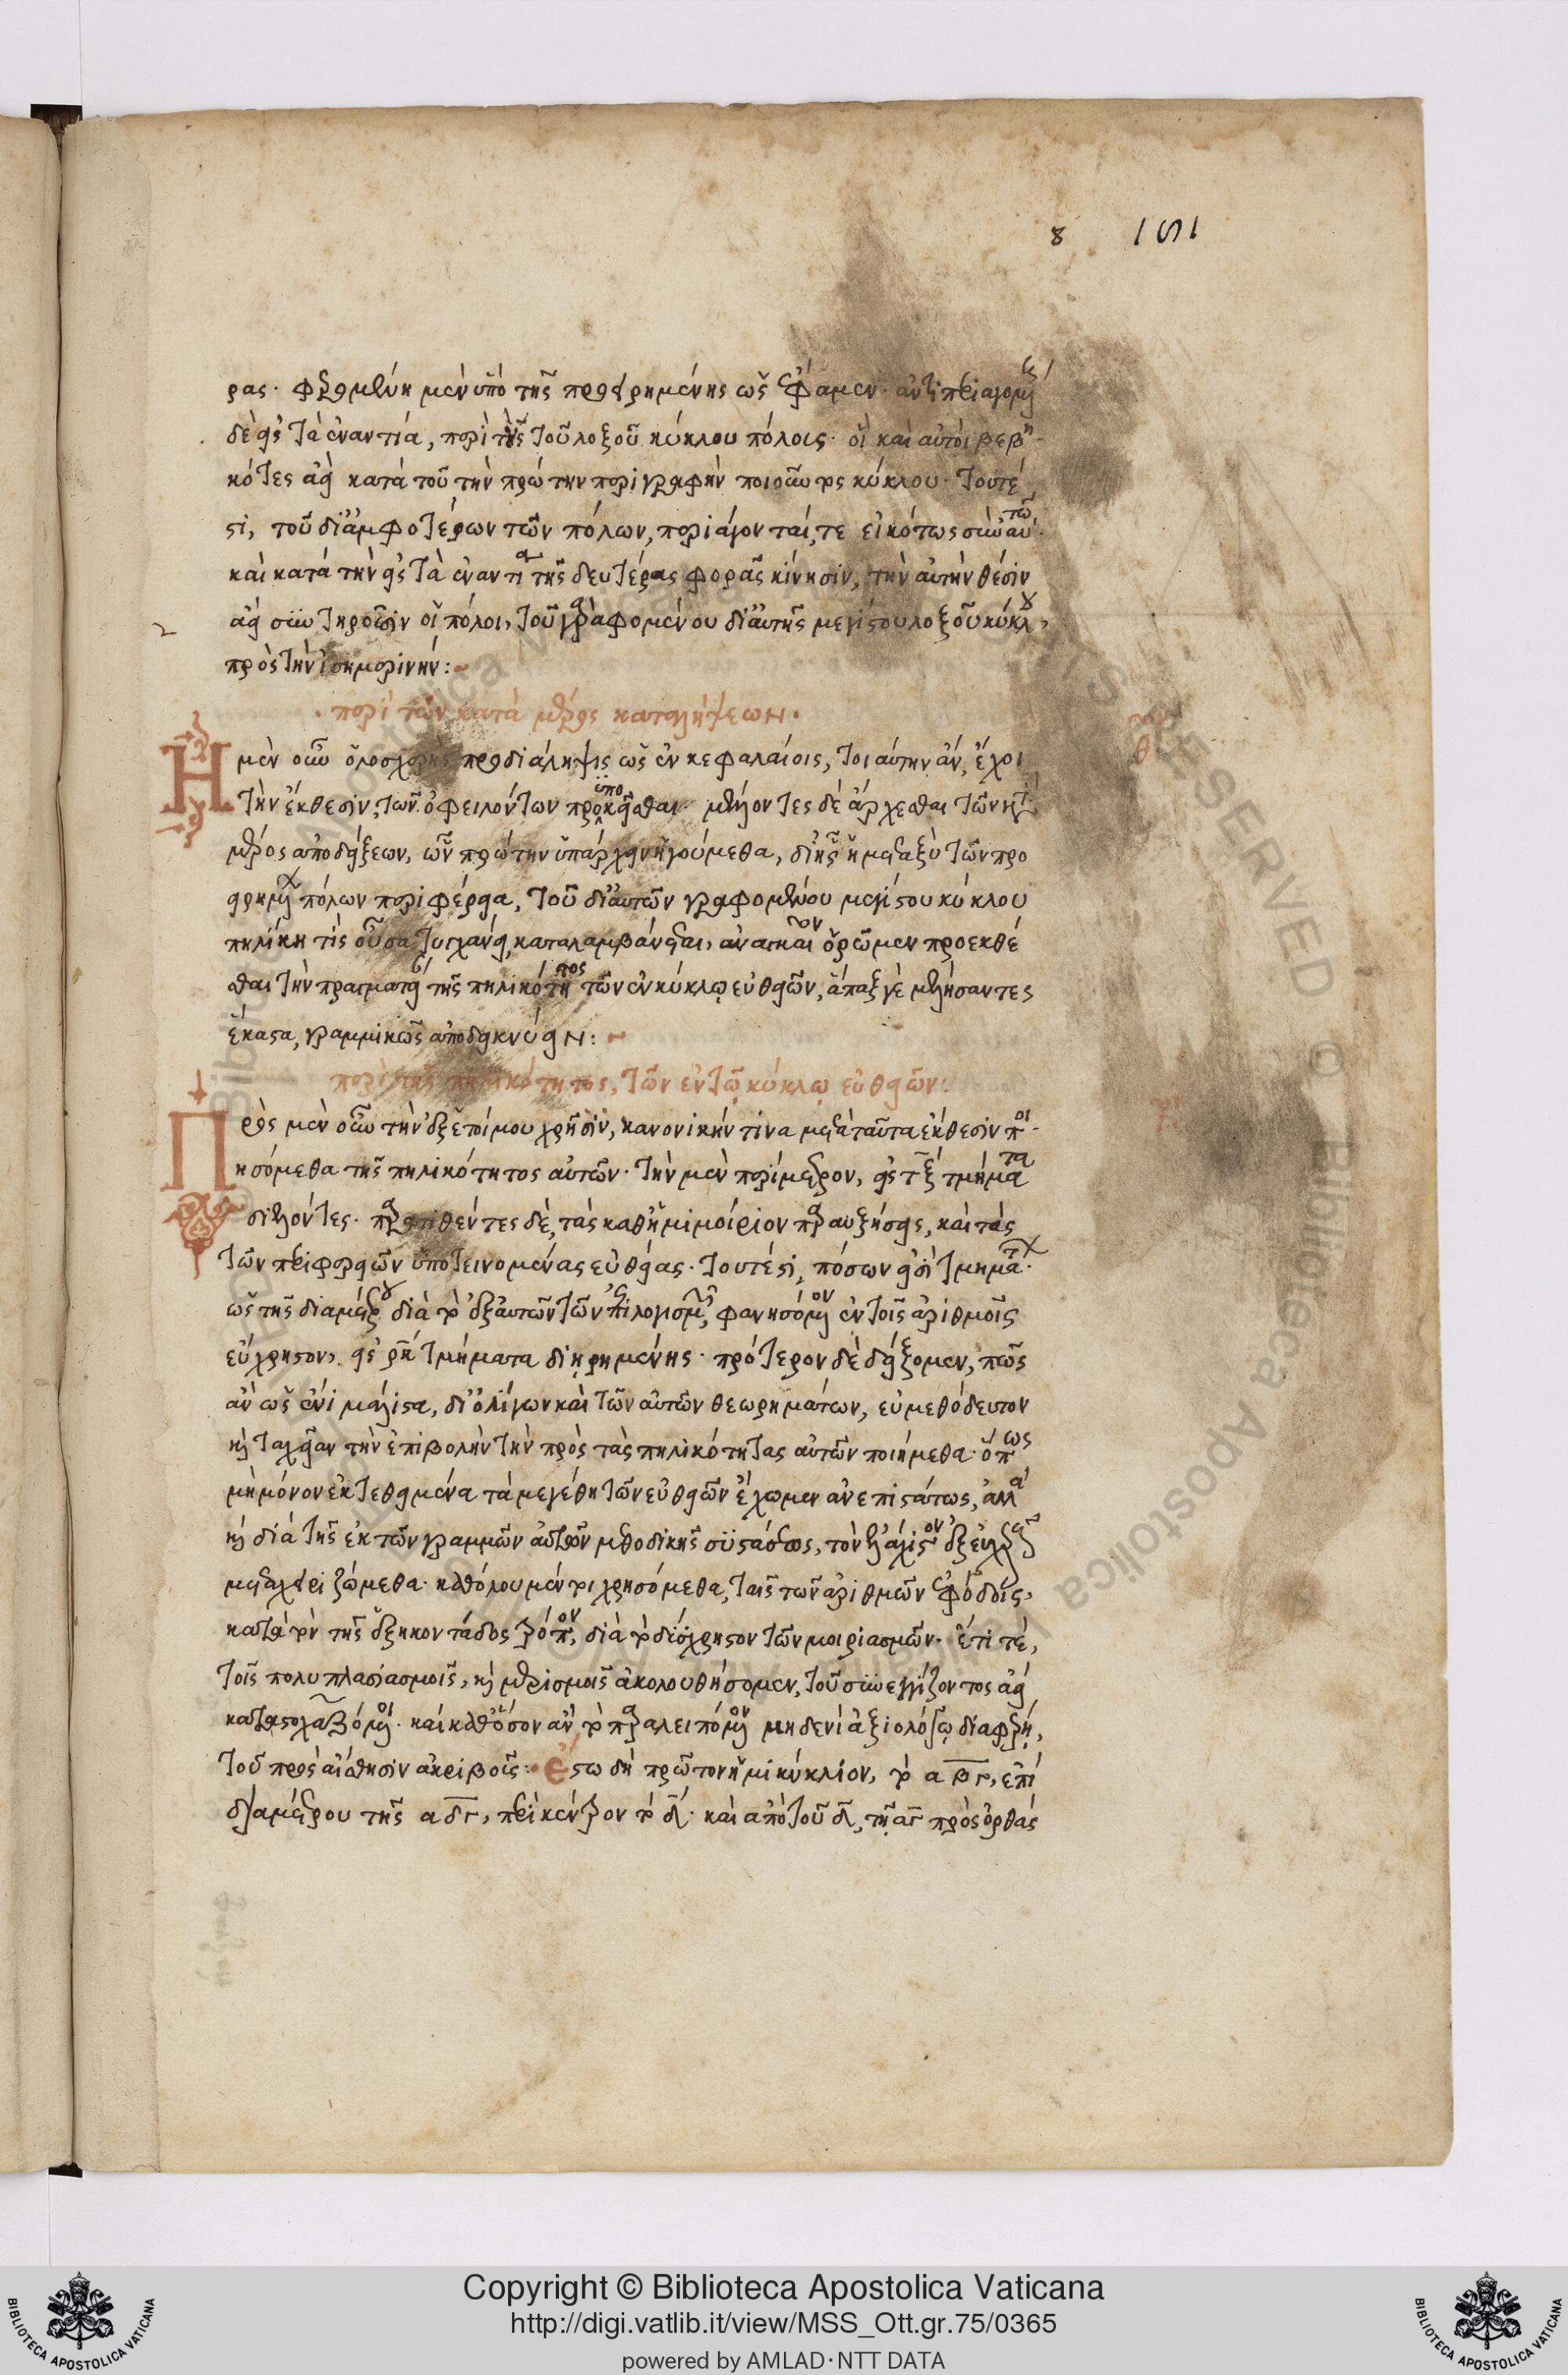 8 151
ρας· φερομένη μὲν ὑπὸ τῆς προειρημένης ὡς ἔφαμεν· ἀντιπεριαγομένης
δὲ εἰς τὰ ἐναντία, περὶ τοὺς τοῦ λοξοῦ κύκλου πόλους· οἳ καὶ αὐτοὶ βεβη-
κότες ἀεὶ κατὰ τοῦ τὴν πρώτην περιγραφὴν ποιοῦντος κύκλου· τουτέ
στι, τοῦ δι' ἀμφοτέρων τῶν πόλων, περιάγονταί, τε εἰκότως σὺν αὐτῷ·
καὶ κατὰ τὴν εἰς τὰ ἐναντία τῆς δευτέρας φορᾶς κίνησιν, τὴν αὐτὴν θέσιν
ἀεὶ συντηροῦσιν οἱ πόλοι, τοῦ γραφομένου δι' αὐτῆς μεγίστου λοξοῦ κύκλου,
πρὸς τὴν ἰσημερινήν:~
·περὶ τῶν κατὰ μέρος καταλήψεων·
Η μὲν οὖν ὁλοσχερὴς προδιάληψις ὡς ἐν κεφαλαίοις, τοιαύτην ἂν, ἔχοι
τὴν ἔκθεσιν, τῶν ὀφειλόντων προϋποκεῖσθαι· μέλλοντες δὲ ἄρχεσθαι τῶν κατὰ
μέρος ἀποδείξεων, ὧν πρώτην ὑπάρχειν ἡγούμεθα, δι' ἧς ἡ μεταξὺ τῶν προ
ειρημένων πόλων περιφέρεια, τοῦ δι' αὐτῶν γραφομένου μεγίστου κύκλου
πηλίκη τις οὖσα τυγχάνει, καταλαμβάνεται, ἀναγκαῖον ὁρῶμεν προεκθέ
σθαι τὴν πραγματείαν τῆς πηλικότητος τῶν ἐν κύκλῳ εὐθειῶν, ἅπαξ γε μελλήσαντες
ἕκαστα, γραμμικῶς ἀποδεικνύειν:~
περὶ τῆς πηλικότητος, τῶν ἐν τῷ κύκλῳ εὐθειῶν:
Προς μὲν οὖν τὴν ἐξ ἑτοίμου χρῆσιν, κανονικήν τινα μετὰ ταῦτα ἔκθεσιν ποι-
ησόμεθα τῆς πηλικότητος αὐτῶν· τὴν μὲν περίμετρον, εἰς τξ τμήματα
διελόντες· παρατιθέντες δὲ, τὰς καθ' ἡμιμοίριον παραυξήσεις, καὶ τὰς
τῶν περιφερειῶν ὑποτεινομένας εὐθείας· τουτέστι, πόσων εἰσὶ τμημάτων·
ὡς τῆς διαμέτρου διὰ τὸ ἐξ αὐτῶν τῶν ἐπιλογισμῶν, φανησόμενον ἐν τοῖς ἀριθμοῖς
εὔχρηστον, εἰς ρκ τμήματα διῃρημένης· πρότερον δὲ δείξομεν, πῶς
ἂν ὡς ἔνι μάλιστα, δι' ὀλίγων καὶ τῶν αὐτῶν θεωρημάτων, εὐμεθόδευτον
καὶ ταχεῖαν τὴν ἐπιβολὴν τὴν πρὸς τὰς πηλικότητας αὐτῶν ποιήμεθα· ὅπως
μὴ μόνον ἐκτεθειμένα τὰ μεγέθη τῶν εὐθειῶν ἔχωμεν ἀνεπιστάτως, ἀλλὰ
καὶ διὰ τῆς ἐκ τῶν γραμμῶν αὐτῶν μεθοδικῆς συστάσεως, τὸν ἔλεγχον ἐξ εὐχεροῦς
μεταχειριζώμεθα· καθόλου μέντοι χρησόμεθα, ταῖς τῶν ἀριθμῶν ἐφόδοις,
κατὰ τὸν τῆς ἑξηκοντάδος τρόπον, διὰ τὸ δύσχρηστον τῶν μοιριασμῶν· ἔτι τέ,
τοῖς πολυπλασιασμοῖς, καὶ μερισμοῖς ἀκολουθήσομεν, τοῦ συνεγγίζοντος ἀεὶ
καταστοχαζόμενοι· καὶ καθόσον ἂν τὸ παραλειπόμενον μηδενὶ ἀξιολόγῳ διαφέρῃ,
τοῦ πρὸς αἴσθησιν ἀκριβοῦς· Ἔστω δὴ πρῶτον ἡμικύκλιον, τὸ αβγ, ἐπὶ
διαμέτρου τῆς αδγ, περὶ κέντρον τὸ δ· καὶ ἀπὸ τοῦ δ, τῇ αγ πρὸς ὀρθὰς
Copyright © Biblioteca Apostolica Vaticana
http://digi.vatlib.it/view/MSS_Ott.gr.75/0365
powered by AMLAD·NTT DATA
BIBLIOTECA APOSTOLICA VATICANA
BIBLIOTECA APOSTOLICA VATICANA